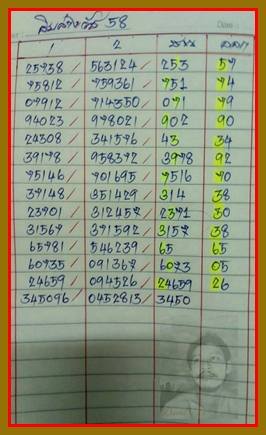 58
1 2
25738 563124 253 57
75812 759361 751 74
07912 714350 071 79
94023 978021 902 90
24308 341576 43 34
39178 958372 3978 92
75146 701695 7516 70
37148 351429 314 38
23701 312457 2371 30
31567 371592 3157 38
65781 546239 65 65
60735 091367 6073 05
24659 094526 24659 26
345096 0452813 3450